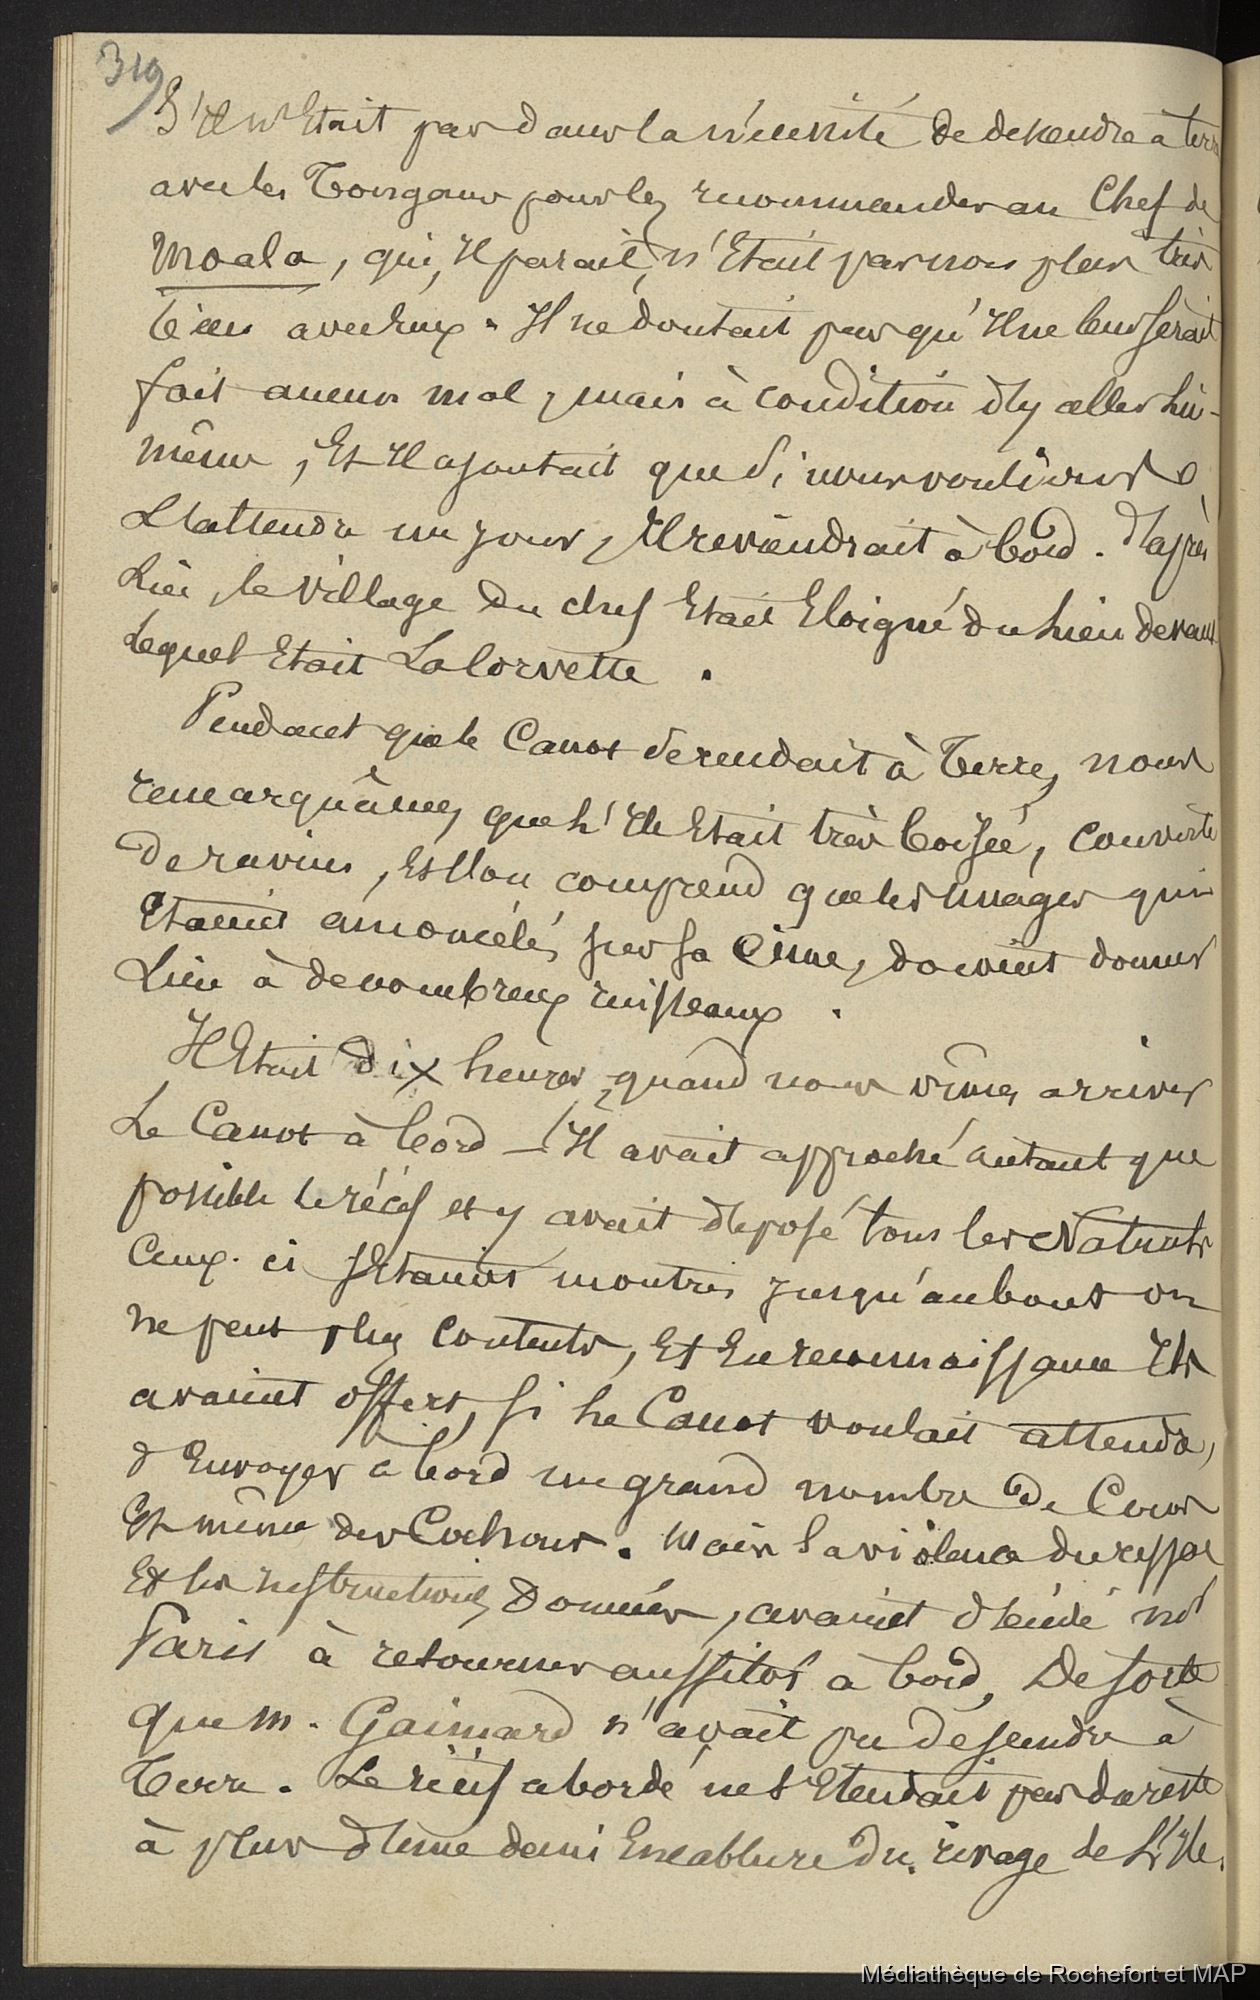 319
S'Il n'Etait pas dans la nécessité de descendre à terre
avec les Tongans pour les recommander au Chef de
Moala, qui, Il parait, n'Etait pas non plus très
bien avec Eux. Il ne doutait pas qu'Il ne leur serait
fait aucun mal, mais à condition d'y aller Lui-
même, Et Il ajoutait que si nous voulions
L'attendre un jour, Il reviendrait à bord. D'après
Lui, le village du chef Etait Eloigné du lieu devant
Lequel Etait La Corvette.
Pendant que le Canot se rendait à Terre, nous
remarquâmes que l'Ile Etait très boisée, couverte
de ravins, Et l'on comprend que les nuages qui
Etaient amoncelés sur sa Cime, doivent donner
Lieu à de nombreux ruisseaux.
Il Etait dix heures, quand nous vîmes arriver
Le Canot à bord - Il avait approché autant que
possible le récif et y avait déposé tous les Naturels
Ceux-ci s'Etaient montrés jusqu'au bout on
ne peut plus contents, Et En reconnaissance Ils
avaient offert, si le Canot voulait attendre,
d'Envoyer à bord un grand nombre de Cocos
Et même des Cochons. Mais la violence du ressac
Et les instructions données, avaient décidé Mr
Paris à retourner aussitôt à bord, De sorte
que M. Gaimard n'avait pu descendre à
Terre. Le récif abordé ne s'Etendait pas du reste
à plus d'une demi Encablure du rivage de L'Ile.
Médiathèque de Rochefort et MAP